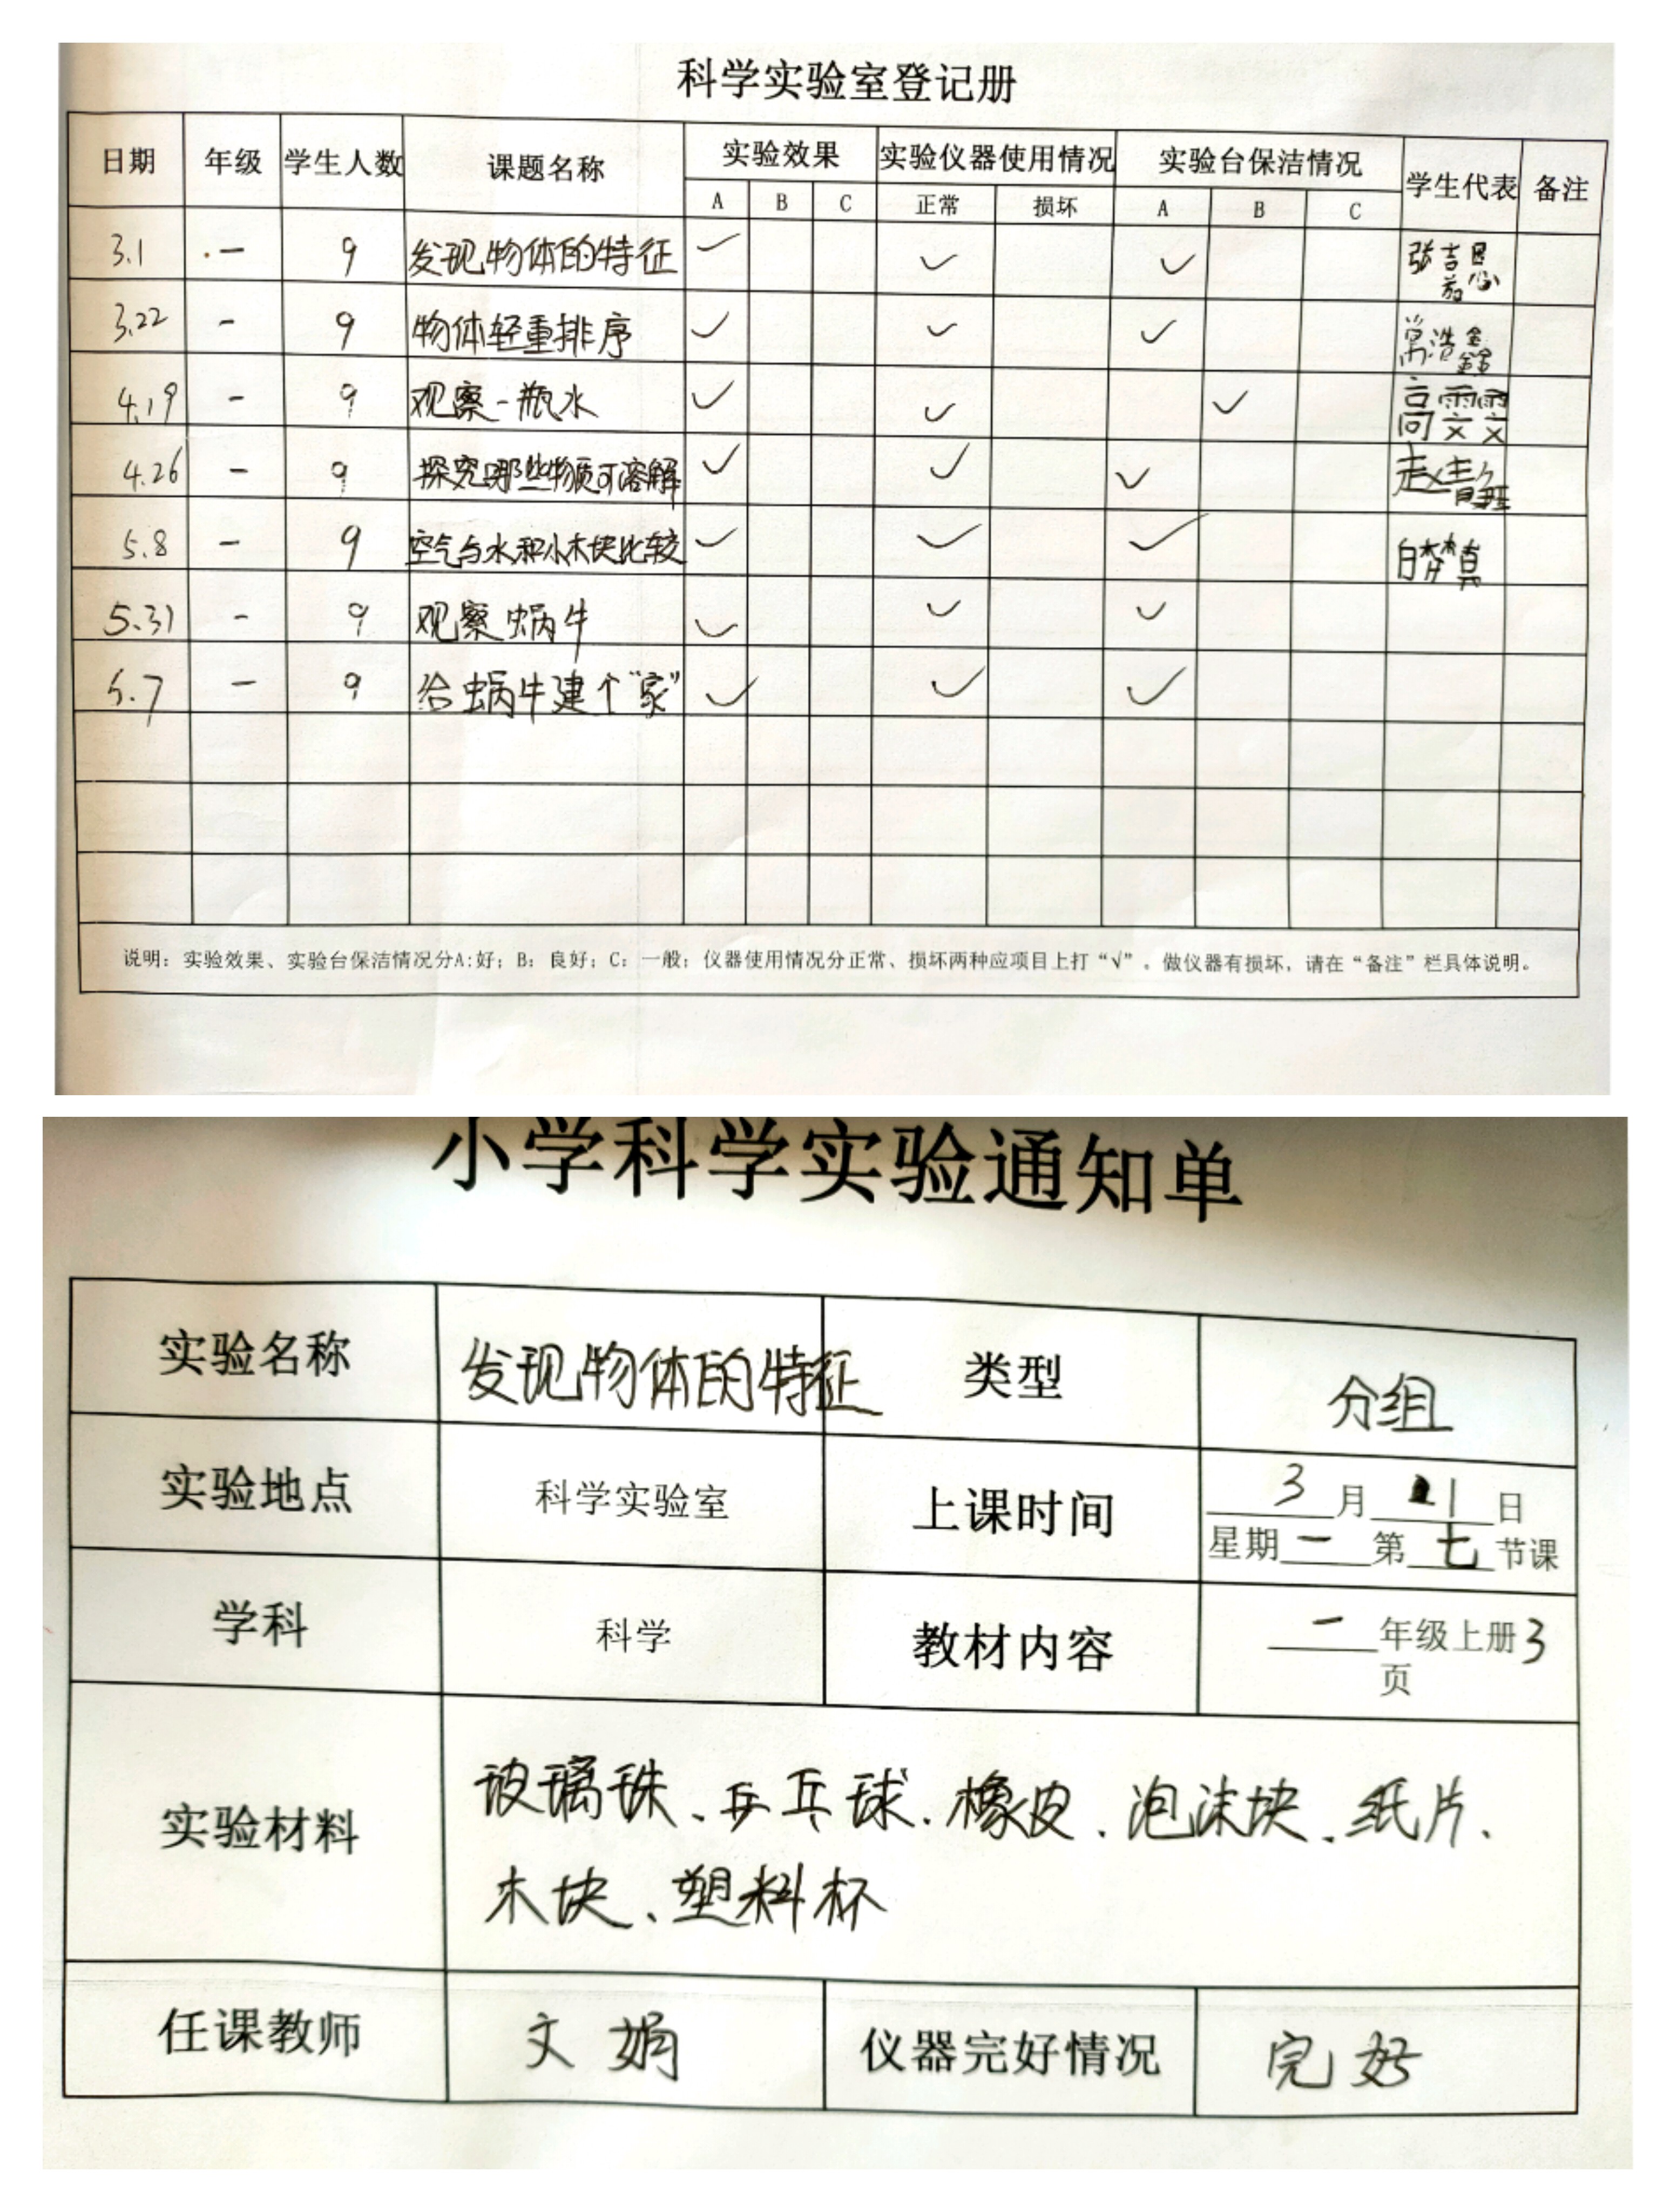 科学实验室登记册
日期 年级 学生人数 课题名称 实验效果 实验仪器使用情况 实验台保洁情况 学生代表 备注
A B C 正常 损坏 A B C
3.1 一 9 发现物体的特征 ✓ ✓ ✓ 张吉
3.22 一 9 物体轻重排序 ✓ ✓ ✓ 常浩鑫
4.19 一 9 观察一瓶水 ✓ ✓ ✓ 高雯雯
4.26 一 9 探究哪些物质可溶解 ✓ ✓ ✓ 赵青
5.8 一 9 空气与水和小木块比较 ✓ ✓ ✓ 白梦真
5.31 一 9 观察蜗牛 ✓ ✓ ✓
一 9 给蜗牛建个“家” ✓ ✓ ✓
说明：实验效果、实验台保洁情况分A:好；B：良好；C：一般；仪器使用情况分正常、损坏两种应项目上打“√”。做仪器有损坏，请在“备注”栏具体说明。
小学科学实验通知单
实验名称 发现物体的特征 类型 分组
实验地点 科学实验室 上课时间 3月1日
星期一第七节课
学科 科学 教材内容 一年级上册3
页
实验材料 玻璃珠、乒乓球、橡皮、泡沫块、纸片、
木块、塑料杯
任课教师 文娟 仪器完好情况 完好